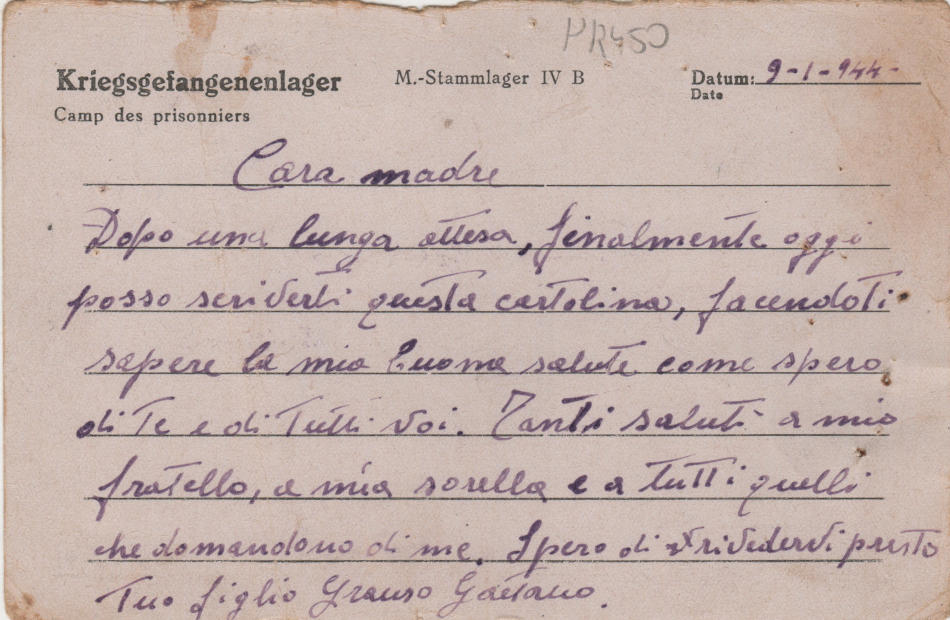 PR450
Kriegsgefangenenlager M.-Stammlager IV B Datum: 9-1-944-
Camp des prisonniers Date
Cara madre
Dopo una lunga attesa, finalmente oggi
posso scriverti questa cartolina, facendoti
sapere la mia buona salute come spero
di te e di tutti voi. Tanti saluti a mio
fratello, a mia sorella e a tutti quelli
che domandono di me. Spero di rivedervi presto
Tuo figlio Grauso Gaetano.